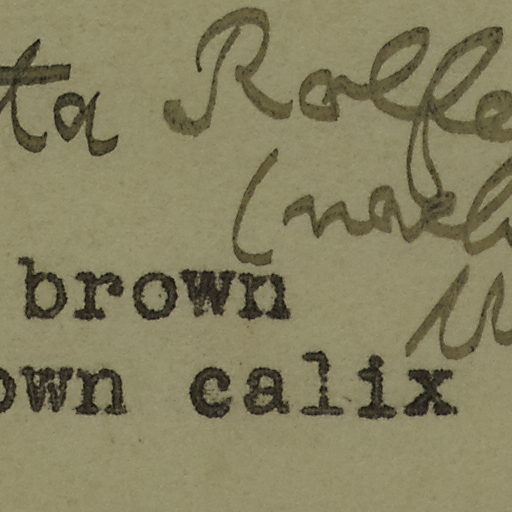 ta Rolfe
(nach
brown
own calix